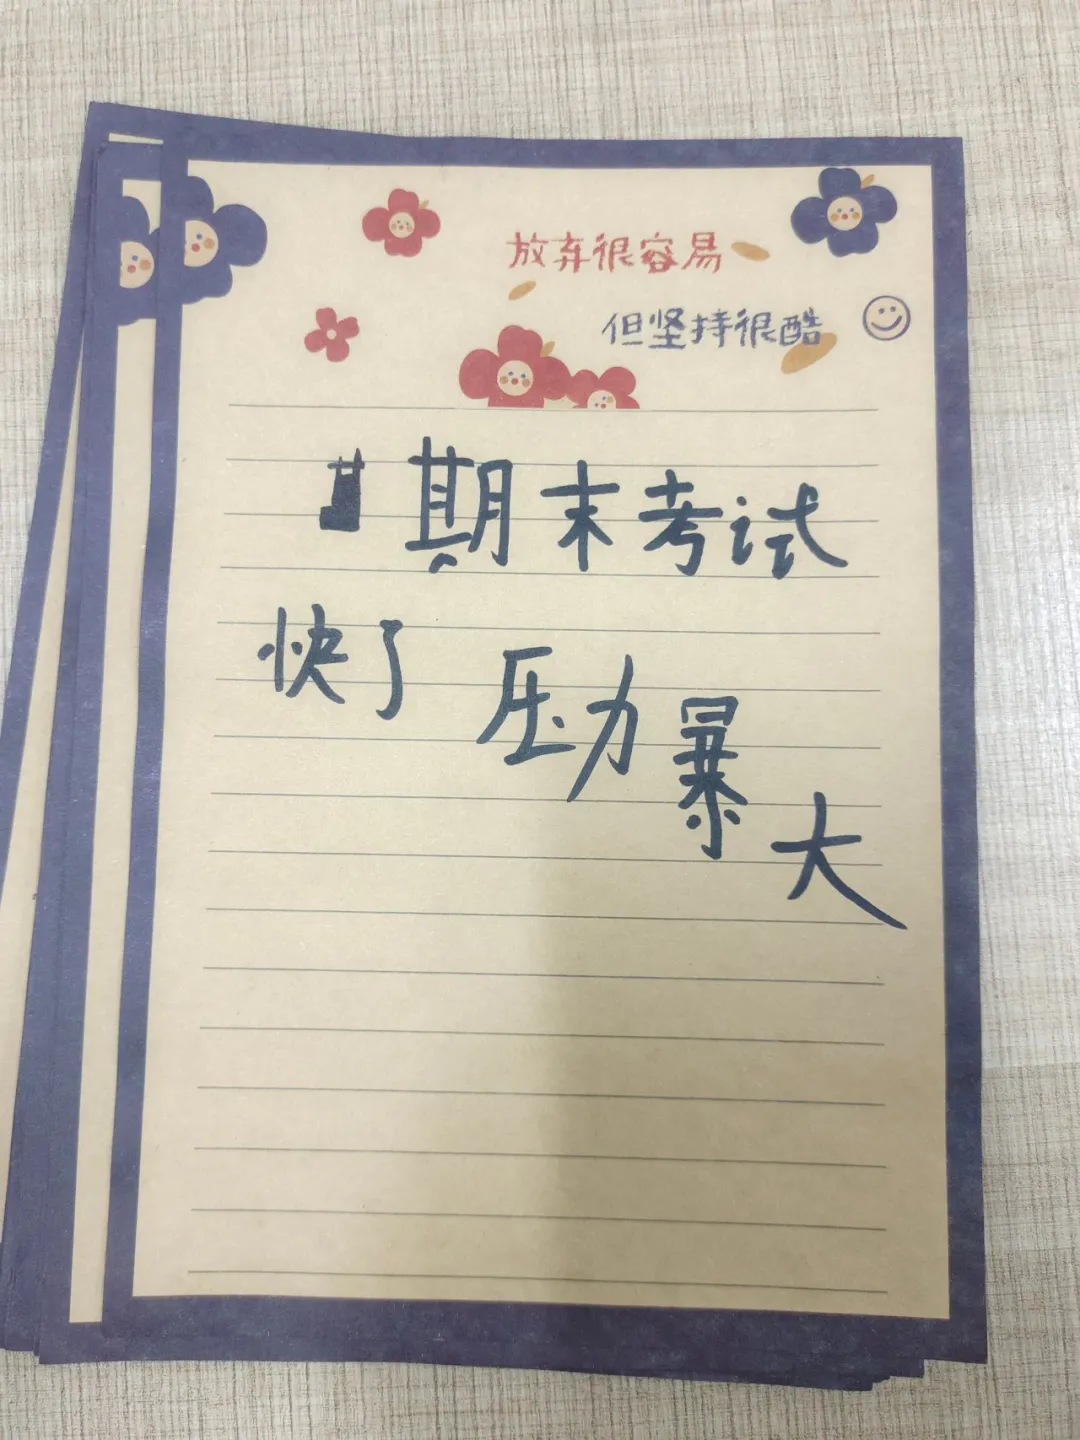 放弃很容易
但坚持很酷
期末考试
快了 压力暴大